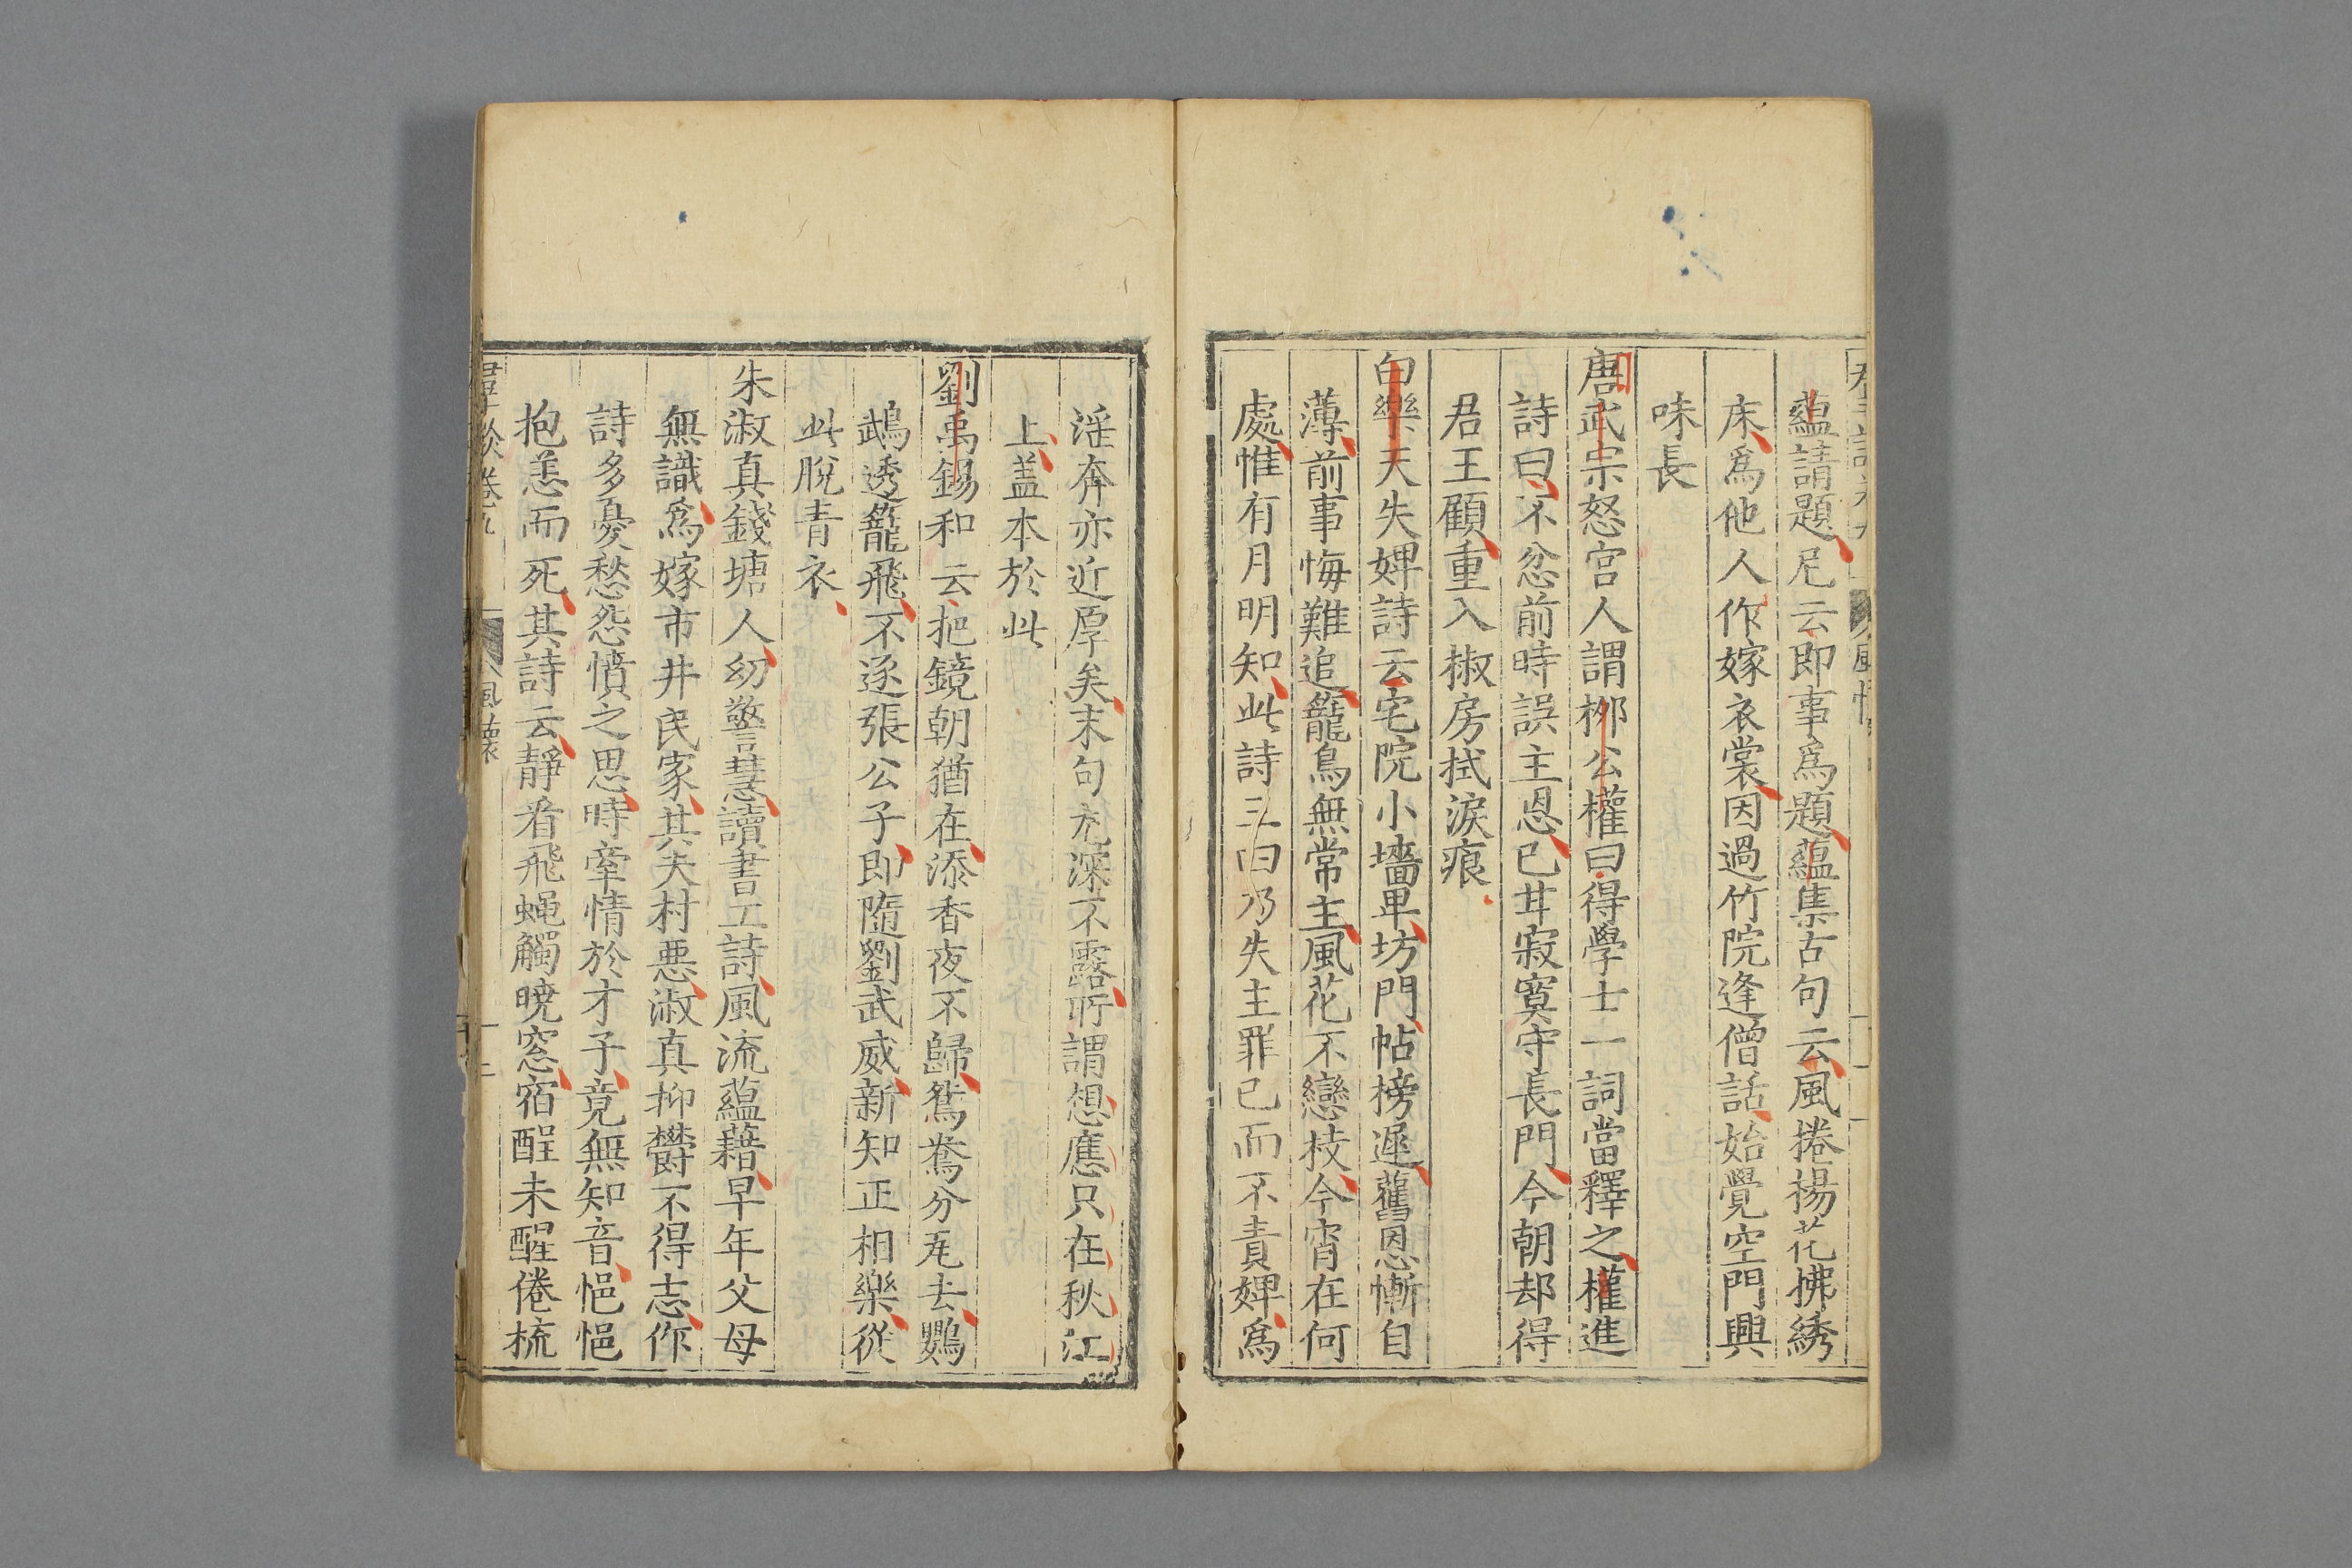 蘊請題尼云即事爲題蘊集古句云風捲楊花拂綉
床爲他人作嫁衣裳因過竹院逢僧話始覺空門興
味長
唐武宗怒宮人謂柳公權曰得學士一詞當釋之權進
詩曰不忿前時誤主恩已甘寂寞守長門今朝却得
君王顧重入椒房拭淚痕
白樂天失婢詩云宅院小墻卑坊門帖榜遲舊恩慚自
薄前事悔難追籠鳥無常主風花不戀枝今宵在何
處惟有月明知此詩三曰乃失主罪已而不責婢爲
淫奔亦近厚矣末句尤深不露所謂想應只在秋江
上盖本於此
劉禹錫和云把鏡朝猶在添香夜不歸鴛鴦分瓦去鸚
鵡透籠飛不逐張公子即隨劉武威新知正相樂從
此脫青衣
朱淑真錢塘人幼警慧讀書工詩風流蘊藉早年父母
無識爲嫁市井民家其夫村悪淑真抑欝不得志作
詩多憂愁怨憤之思時牽情於才子竟無知音悒悒
抱恙而死其詩云靜看飛蝇觸曉窓宿酲未醒倦梳
風懷